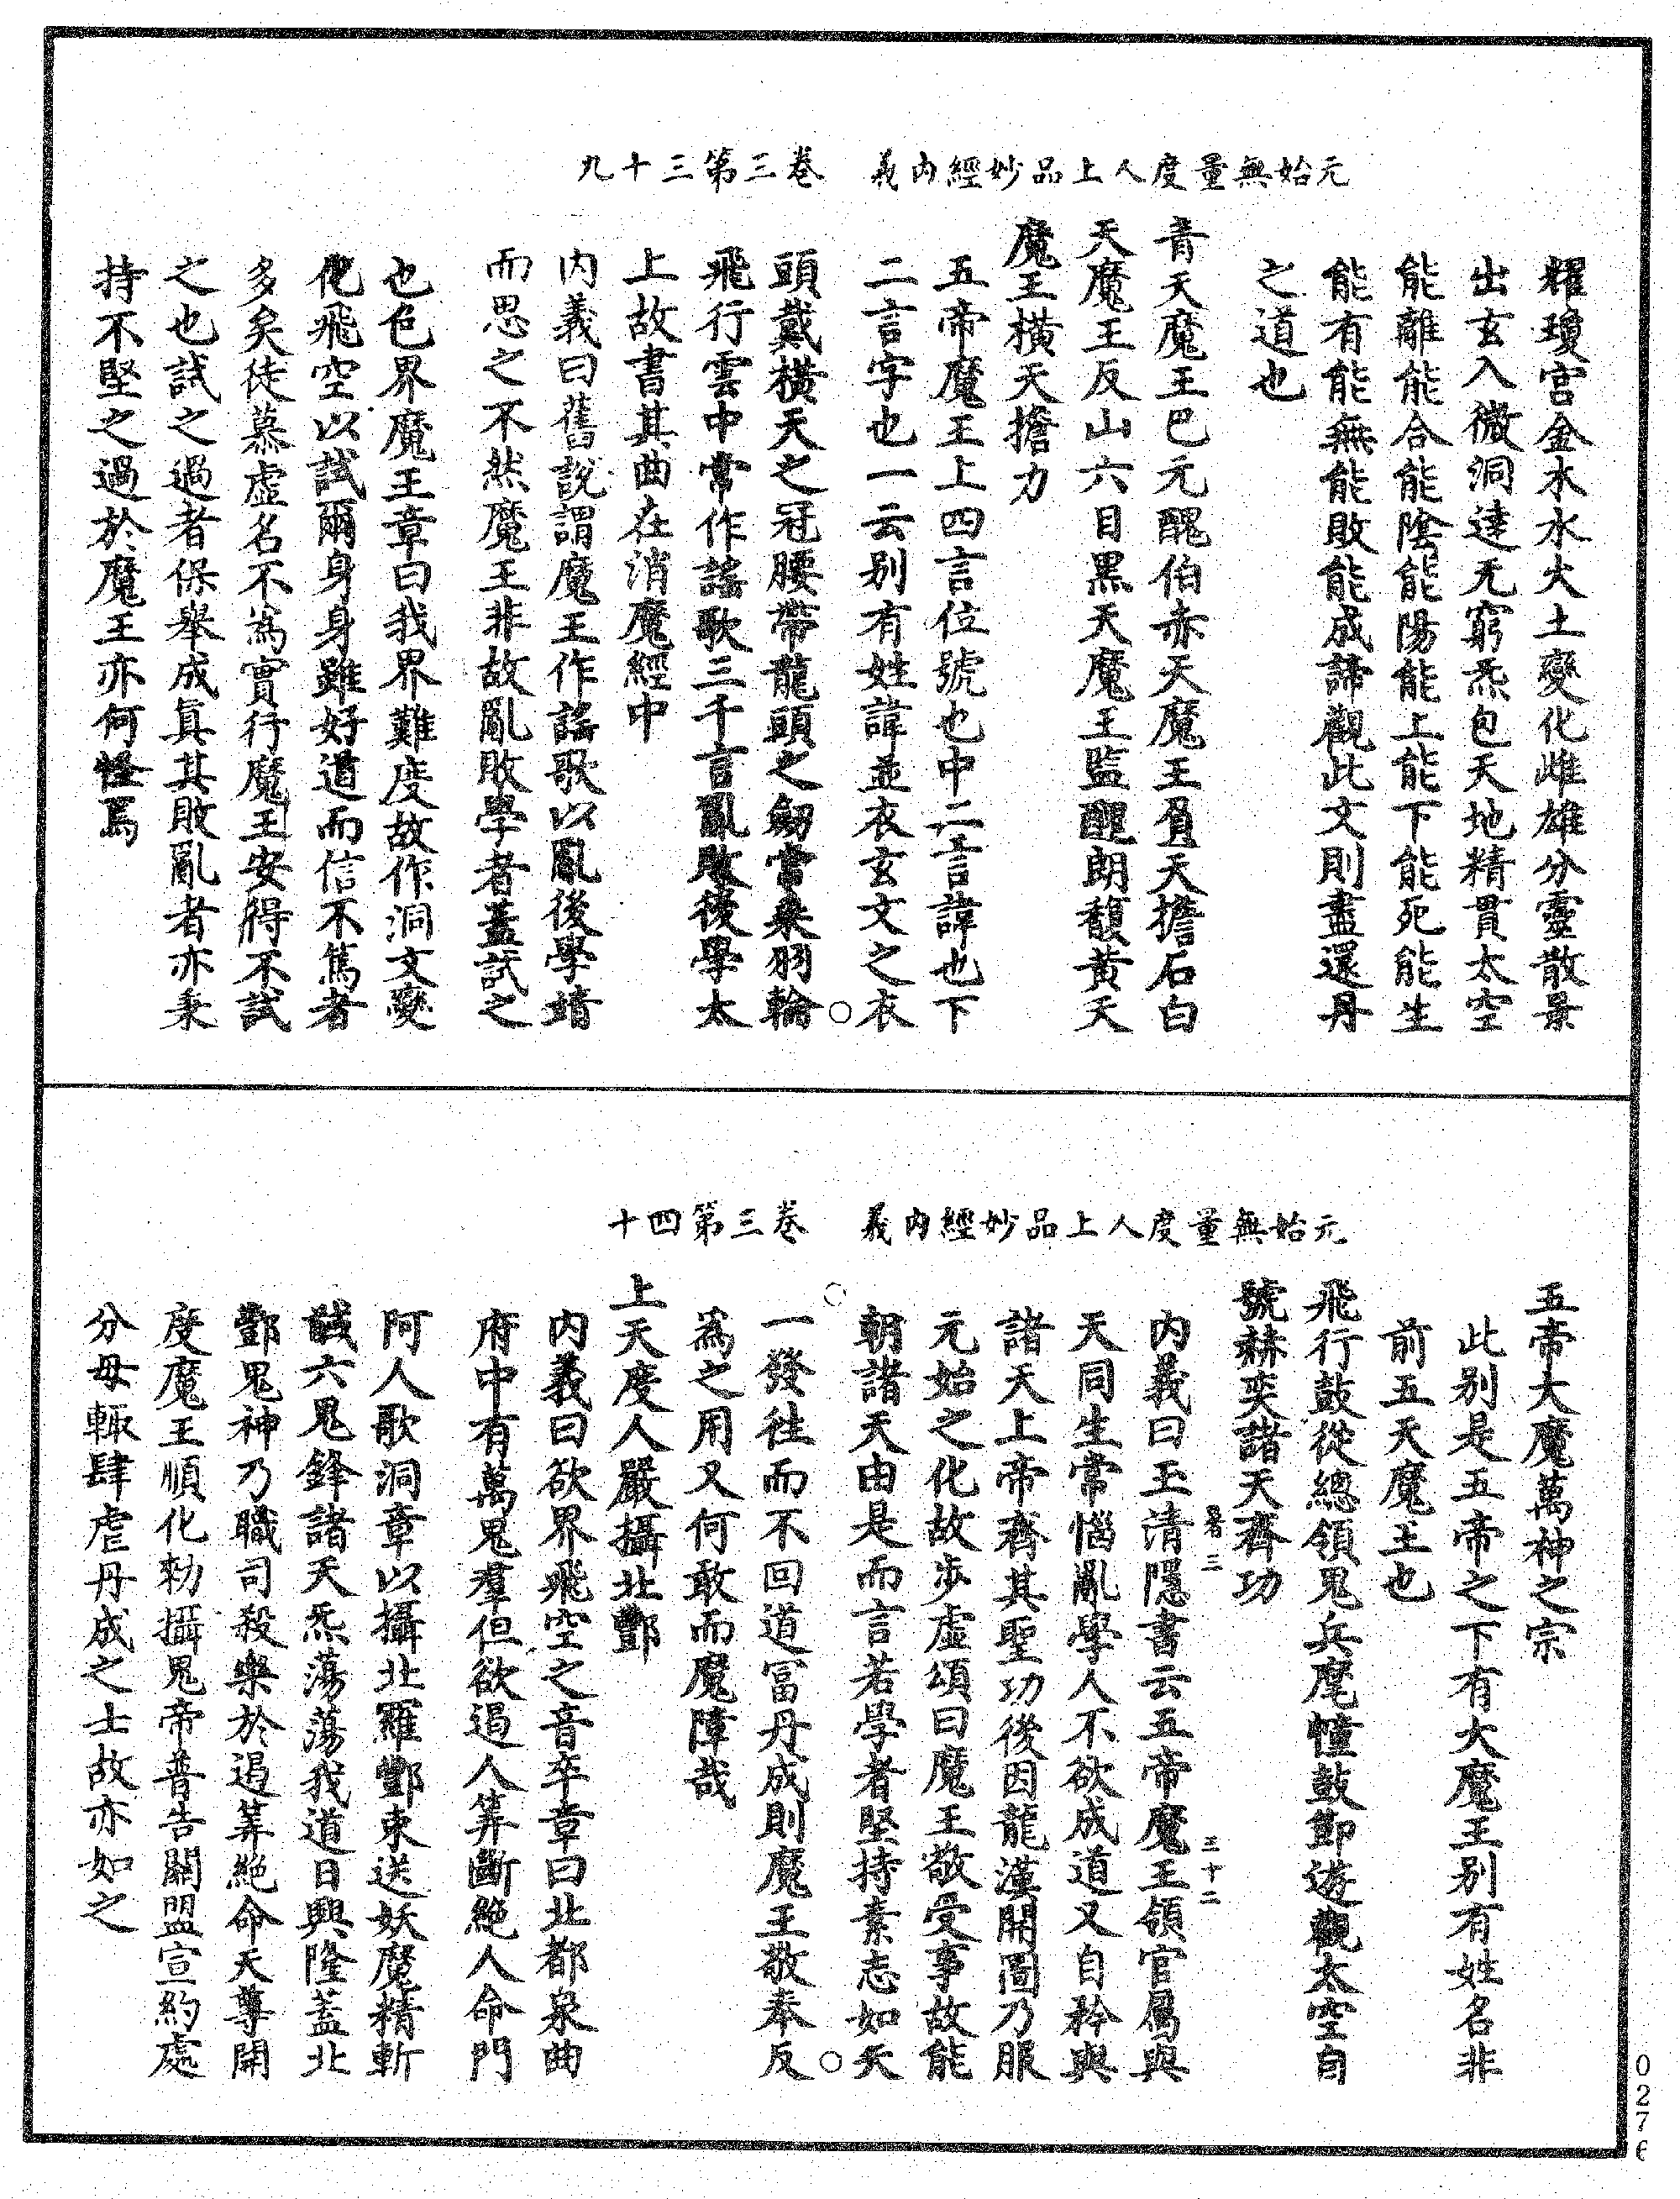 元始無量度人上品妙經內義　卷三第三十九
耀瓊宮金木水火土變化雌雄分靈散景
出玄入微洞達无窮炁包天地精貫太空
能離能合能陰能陽能上能下能死能生
能有能無能敗能成諦觀此文則盡還丹
之道也
青天魔王巴元醜伯赤天魔王負天擔石白
天魔王反山六目黑天魔王監醜朗馥黃天
魔王橫天擔力
五帝魔王上四言位號也中二言諱也下
二言字也一云別有姓諱並衣玄文之衣
頭戴橫天之冠腰帶龍頭之劒嘗乘羽輪
飛行雲中常作謠歌三千言亂敗後學太
上故書其曲在消魔經中
內義曰舊說謂魔王作謠歌以亂後學靖
而思之不然魔王非故亂敗學者蓋試之
也色界魔王章曰我界難度故作洞文變
化飛空以試爾身身雖好道而信不篤者
多矣徒慕虛名不爲實行魔王安得不試
之也試之過者保舉成眞其敗亂者亦秉
持不堅之過於魔王亦何怪焉
元始無量度人上品妙經內義　卷三第四十
五帝大魔萬神之宗
此別是五帝之下有大魔王別有姓名非
前五天魔王也
飛行鼓從總領鬼兵麾幢鼓節遊觀太空自
號赫奕諸天齊功
三　三十二
內義曰玉清隱書云五帝魔王領官屬與
天同生常惱亂學人不欲成道又自矜與
諸天上帝齊其聖功後因龍漢開圖乃服
元始之化故步虛頌曰魔王敬受事故能
朝諸天由是而言若學者堅持素志如矢
一發往而不回道富丹成則魔王敬奉反
爲之用又何敢而魔障哉
上天度人嚴攝北酆
內義曰欲界飛空之音卒章曰北都泉曲
府中有萬鬼羣但欲遏人筭斷絕人命門
阿人歌洞章以攝北羅酆束送妖魔精斬
馘六鬼鋒諸天炁蕩蕩我道日興隆蓋北
酆鬼神乃職司殺樂於遏筭絕命天尊開
度魔王順化勑攝鬼帝普告關盟宣約處
分毋輙肆虐丹成之士故亦如之
0276